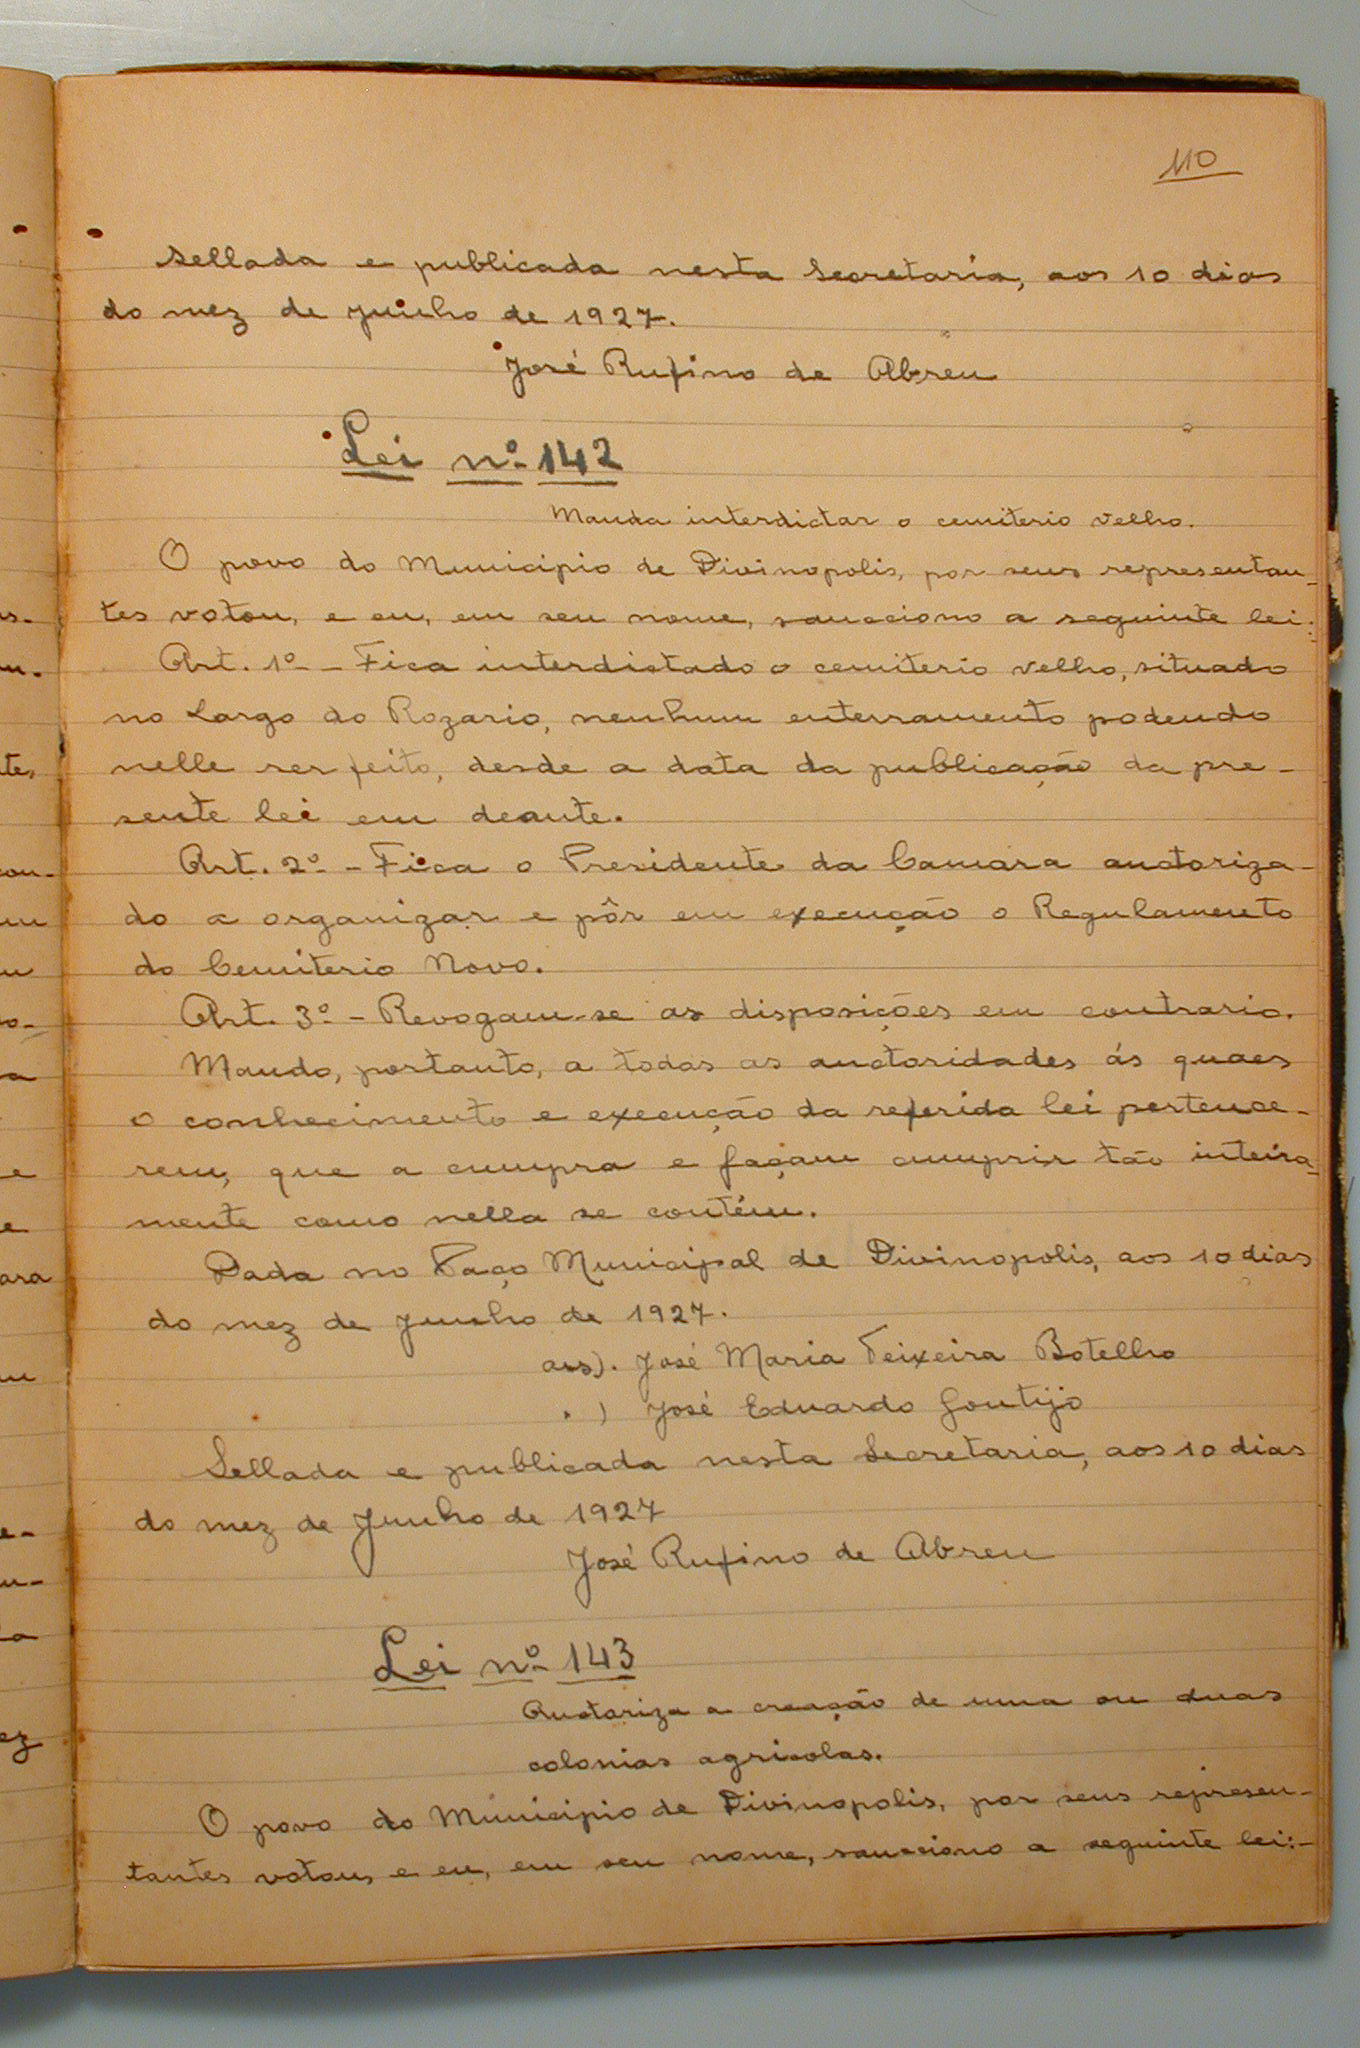 110
sellada e publicada nesta Secretaria, aos 10 dias
do mez de Junho de 1927.
José Rufino de Abreu
Lei nº 142
Manda interdictar o cemiterio velho.
O povo do Municipio de Divinopolis, por seus representan-
tes votou, e eu, em seu nome, sancciono a seguinte lei:
Art. 1º - Fica interdictado o cemiterio velho, situado
no Largo do Rozario, nenhum enterramento podendo
nelle ser feito, desde a data da publicação da pre-
sente lei em deante.
Art. 2º - Fica o Presidente da Camara auctoriza-
do a organizar e pôr em execução o Regulamento
do Cemiterio Novo.
Art. 3º - Revogam-se as disposições em contrario.
Mando, portanto, a todas as auctoridades ás quaes
o conhecimento e execução da referida lei pertence-
rem, que a cumpra e façam cumprir tão inteira-
mente como nella se contém.
Dada no Paço Municipal de Divinopolis, aos 10 dias
do mez de Junho de 1927.
as). José Maria Teixeira Botelho
" ) José Eduardo Gontijo
Sellada e publicada nesta Secretaria, aos 10 dias
do mez de Junho de 1927
José Rufino de Abreu
Lei nº 143
Auctoriza a creação de uma ou duas
colonias agricolas.
O povo do Municipio de Divinopolis, por seus represen-
tantes votou, e eu, em seu nome, sancciono a seguinte lei:-